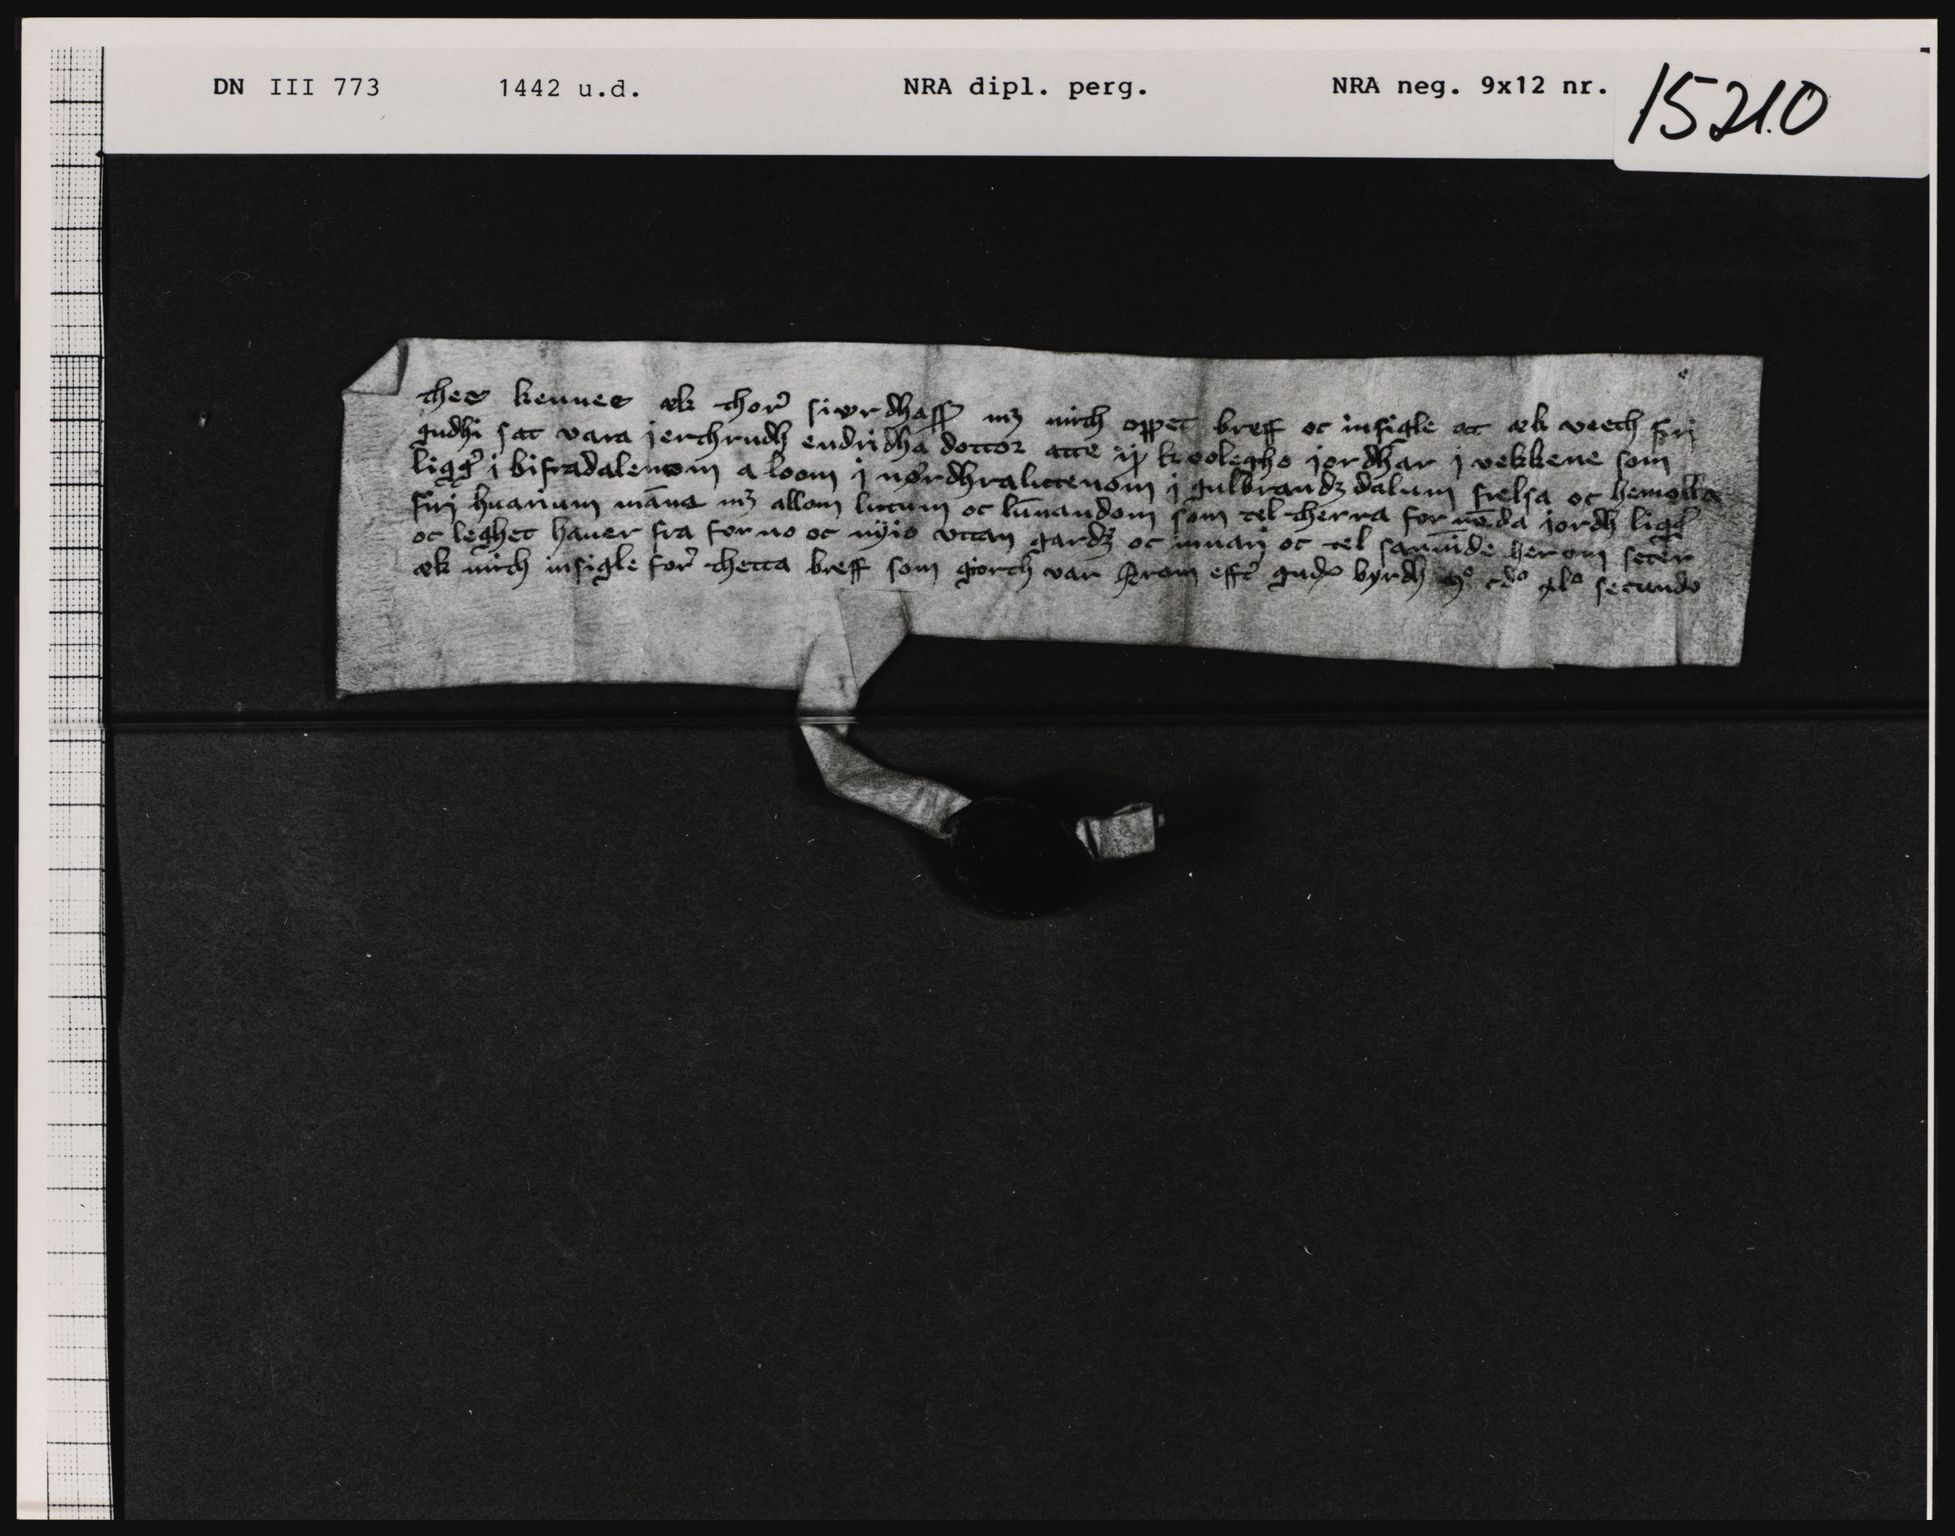 DN III 773 1442 u.d. NRA dipl. perg. NRA neg. 9x12 nr. 15210
thes kennes æk thor siwrdhass mz mith oppet breff oc insigle at æk veeth firj
gudhi sat vara jerthrudh endridha dottor atte ij koolegho jordhar j vekkene som
ligg j bisradalenom a loom j nørdhraluttenom j gulbrandz dalum frelsa oc hemolla
firj huarium mans mz allom lutum oc lunandom som tel therra for nda jordh ligg
oc leghet hauer fra forno oc nyio vttan gardz oc innan oc tel sannide her om seter
æk mith insigle for thetta breff som giorth var arom effter gudz byrdh m° cd° xl° secundo